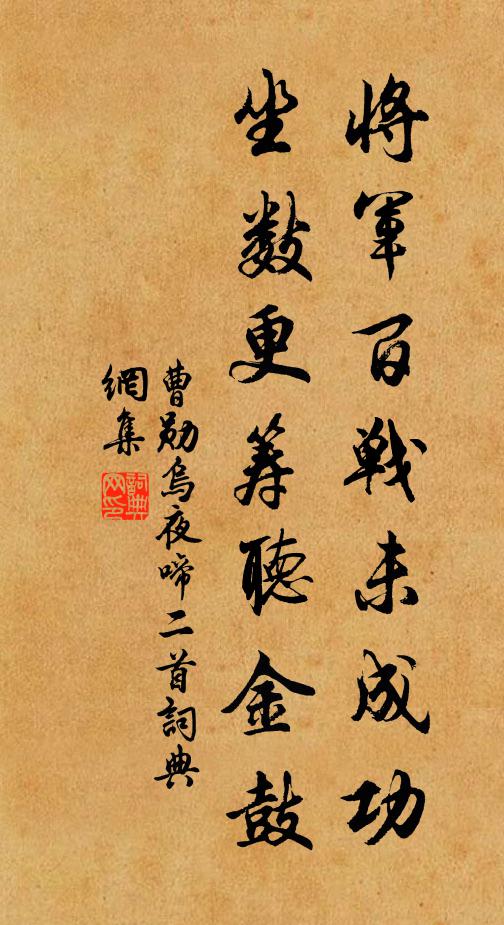 將軍百戰未成功
坐數更筹聽金鼓
曹勛烏夜啼二首詞典
網集
詞典
网印